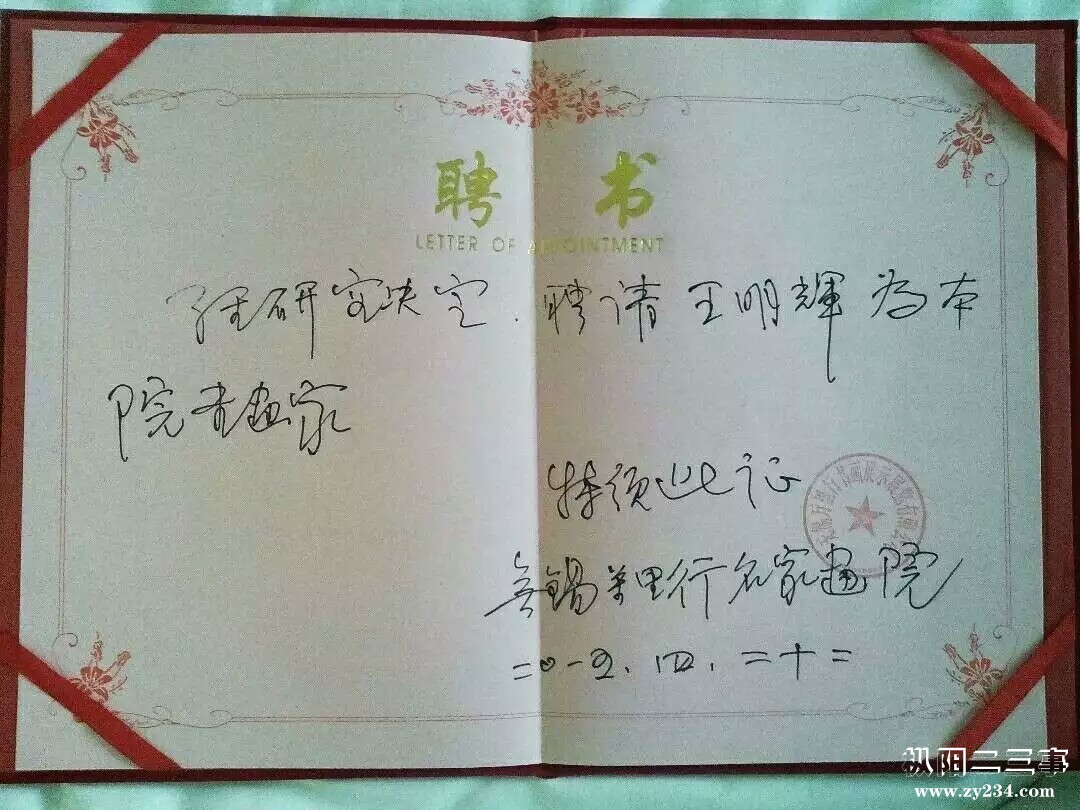 聘书
LETTER OF APPOINTMENT
经研究决定．聘请王明輝为本
院书画家
特颁此证
无锡万里行书画展示展览有限公司
无錫万里行名家画院
二〇一五．四．二十二
枞阳二三事
www.zy234.com